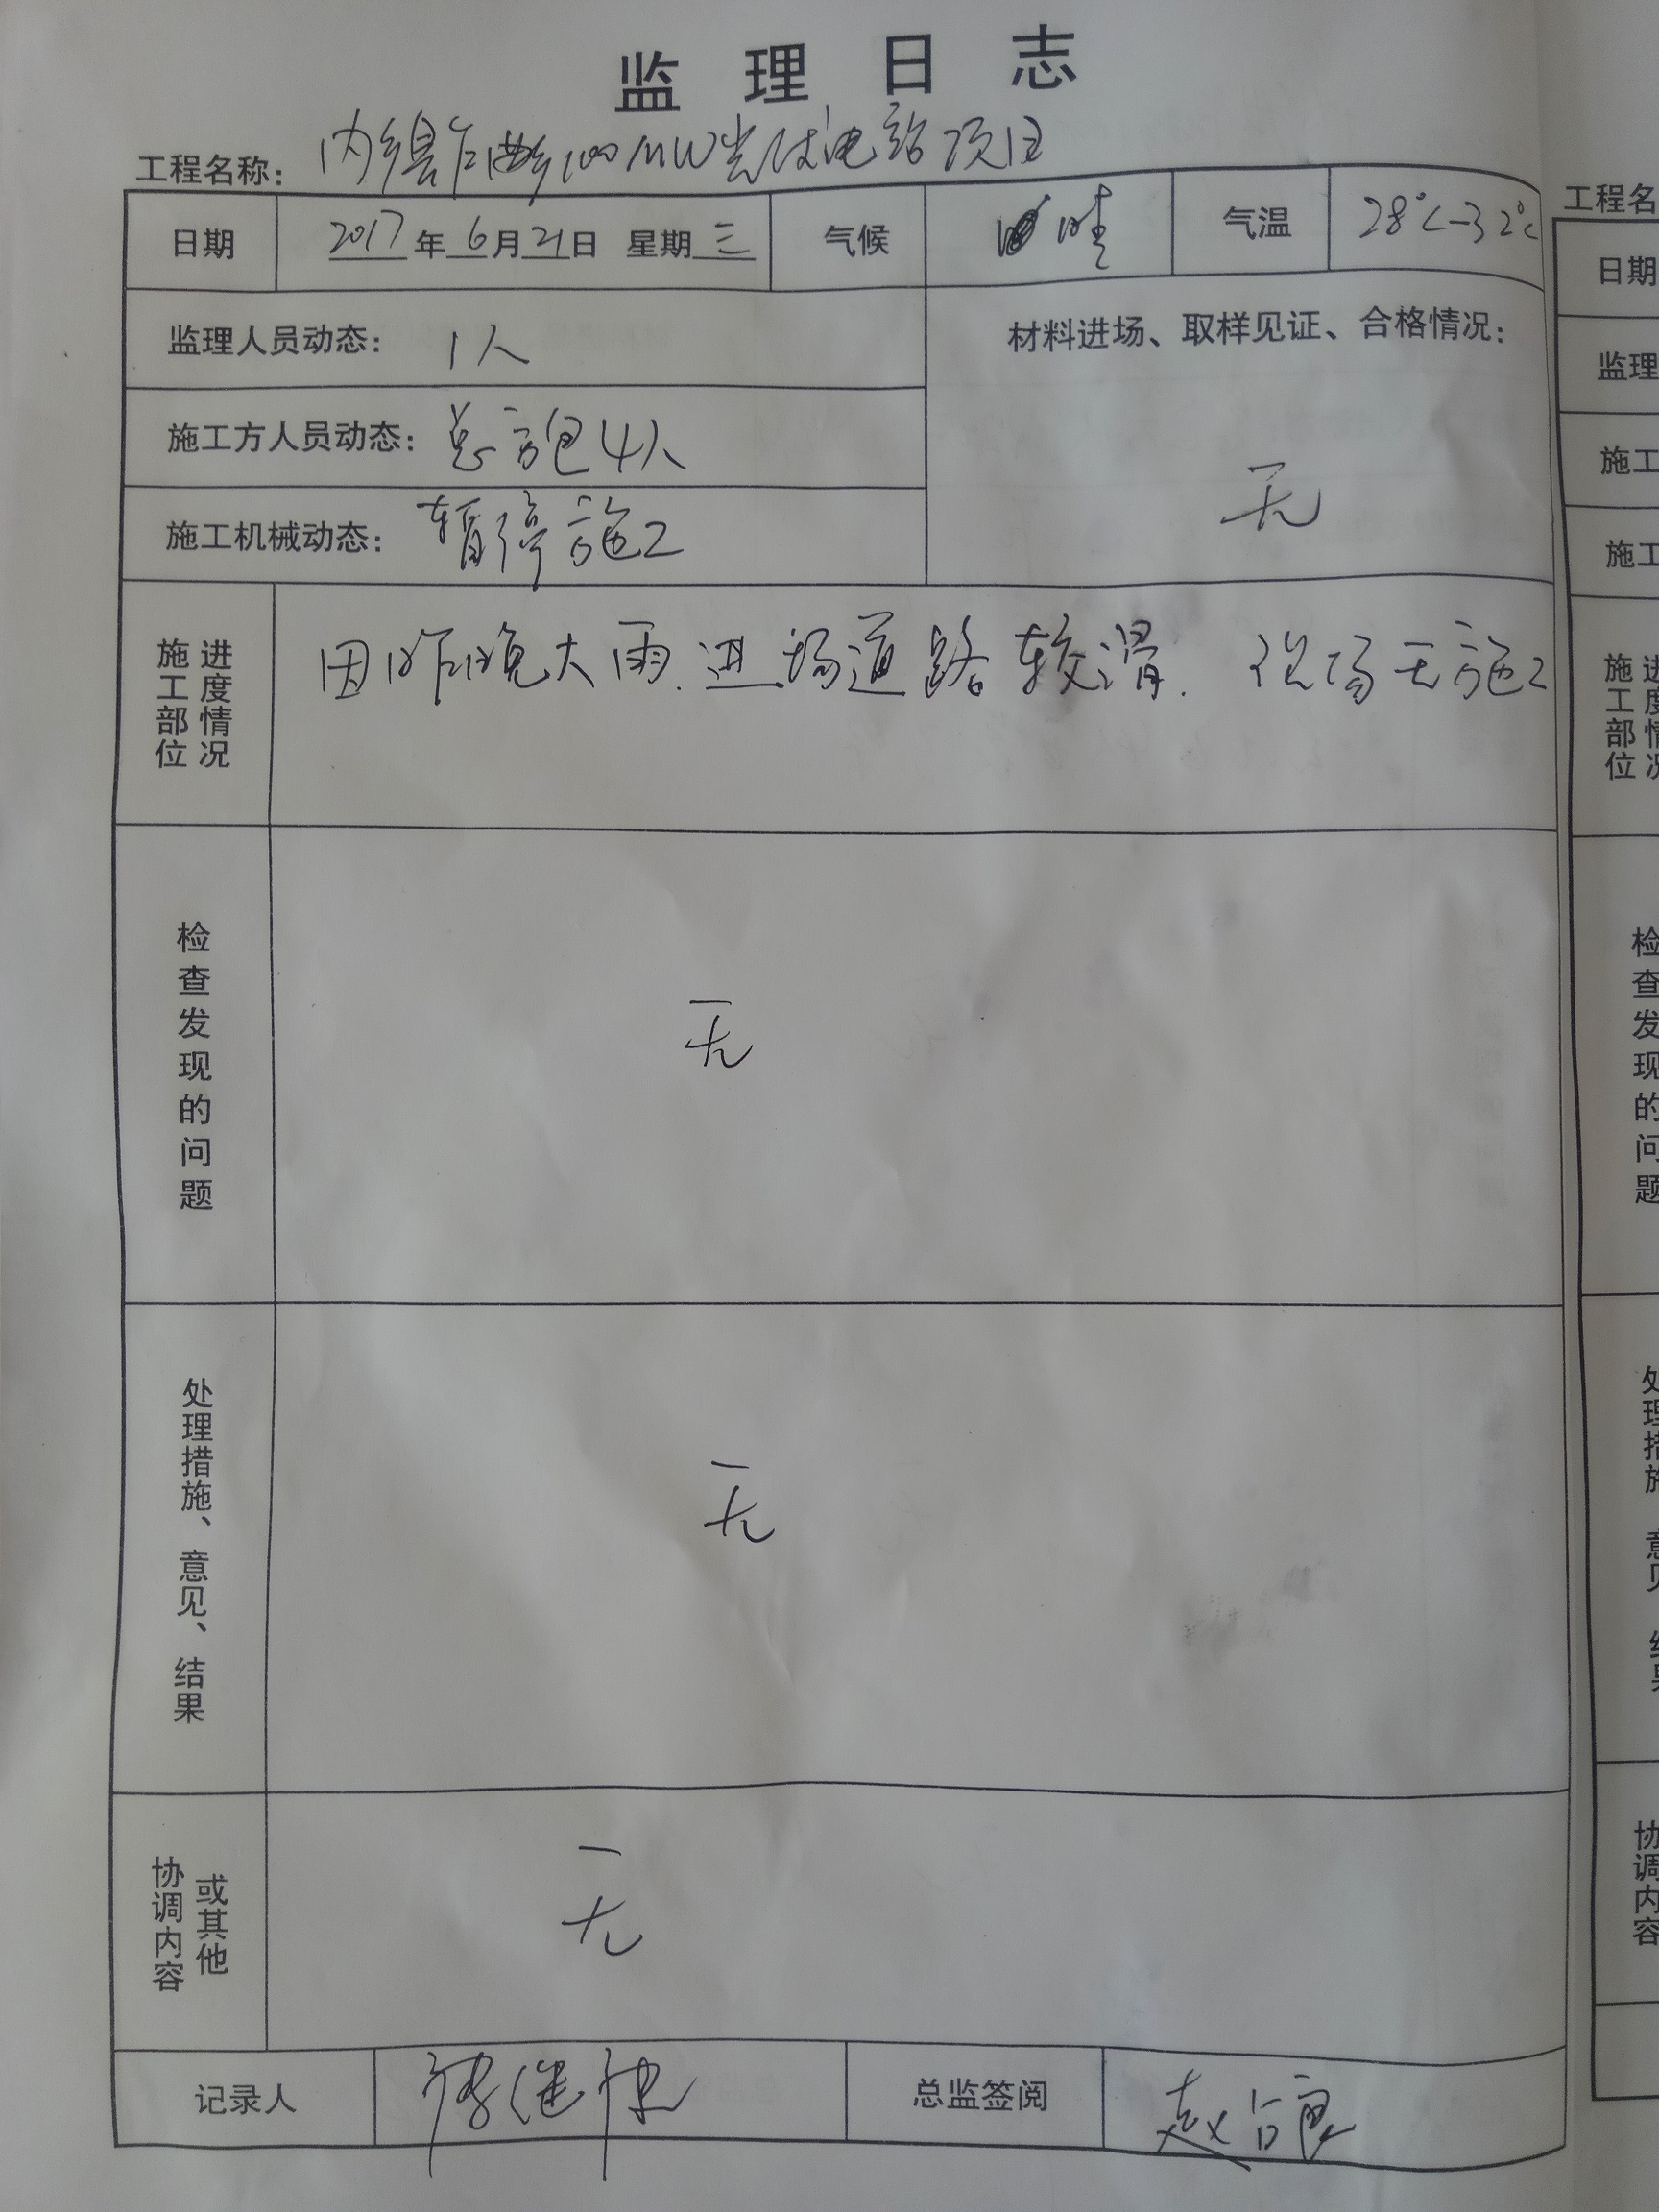 监理日志
工程名称: 内乡县乍曲乡100MW光伏电站项目
日期 2017年6月21日 星期三 气候 晴 气温 28℃-32℃
监理人员动态: 1人
材料进场、取样见证、合格情况:
无
施工方人员动态: 总包4人
施工机械动态: 暂停施工
施工部位 进度情况
因昨晚大雨.进场道路较滑. 现场无施工
检查发现的问题
无
处理措施、意见、结果
无
协调内容 或其他
无
记录人 总监签阅 赵
工程名
日期
监理
施工
施工
施工部位
检查发现的问题
协调内容